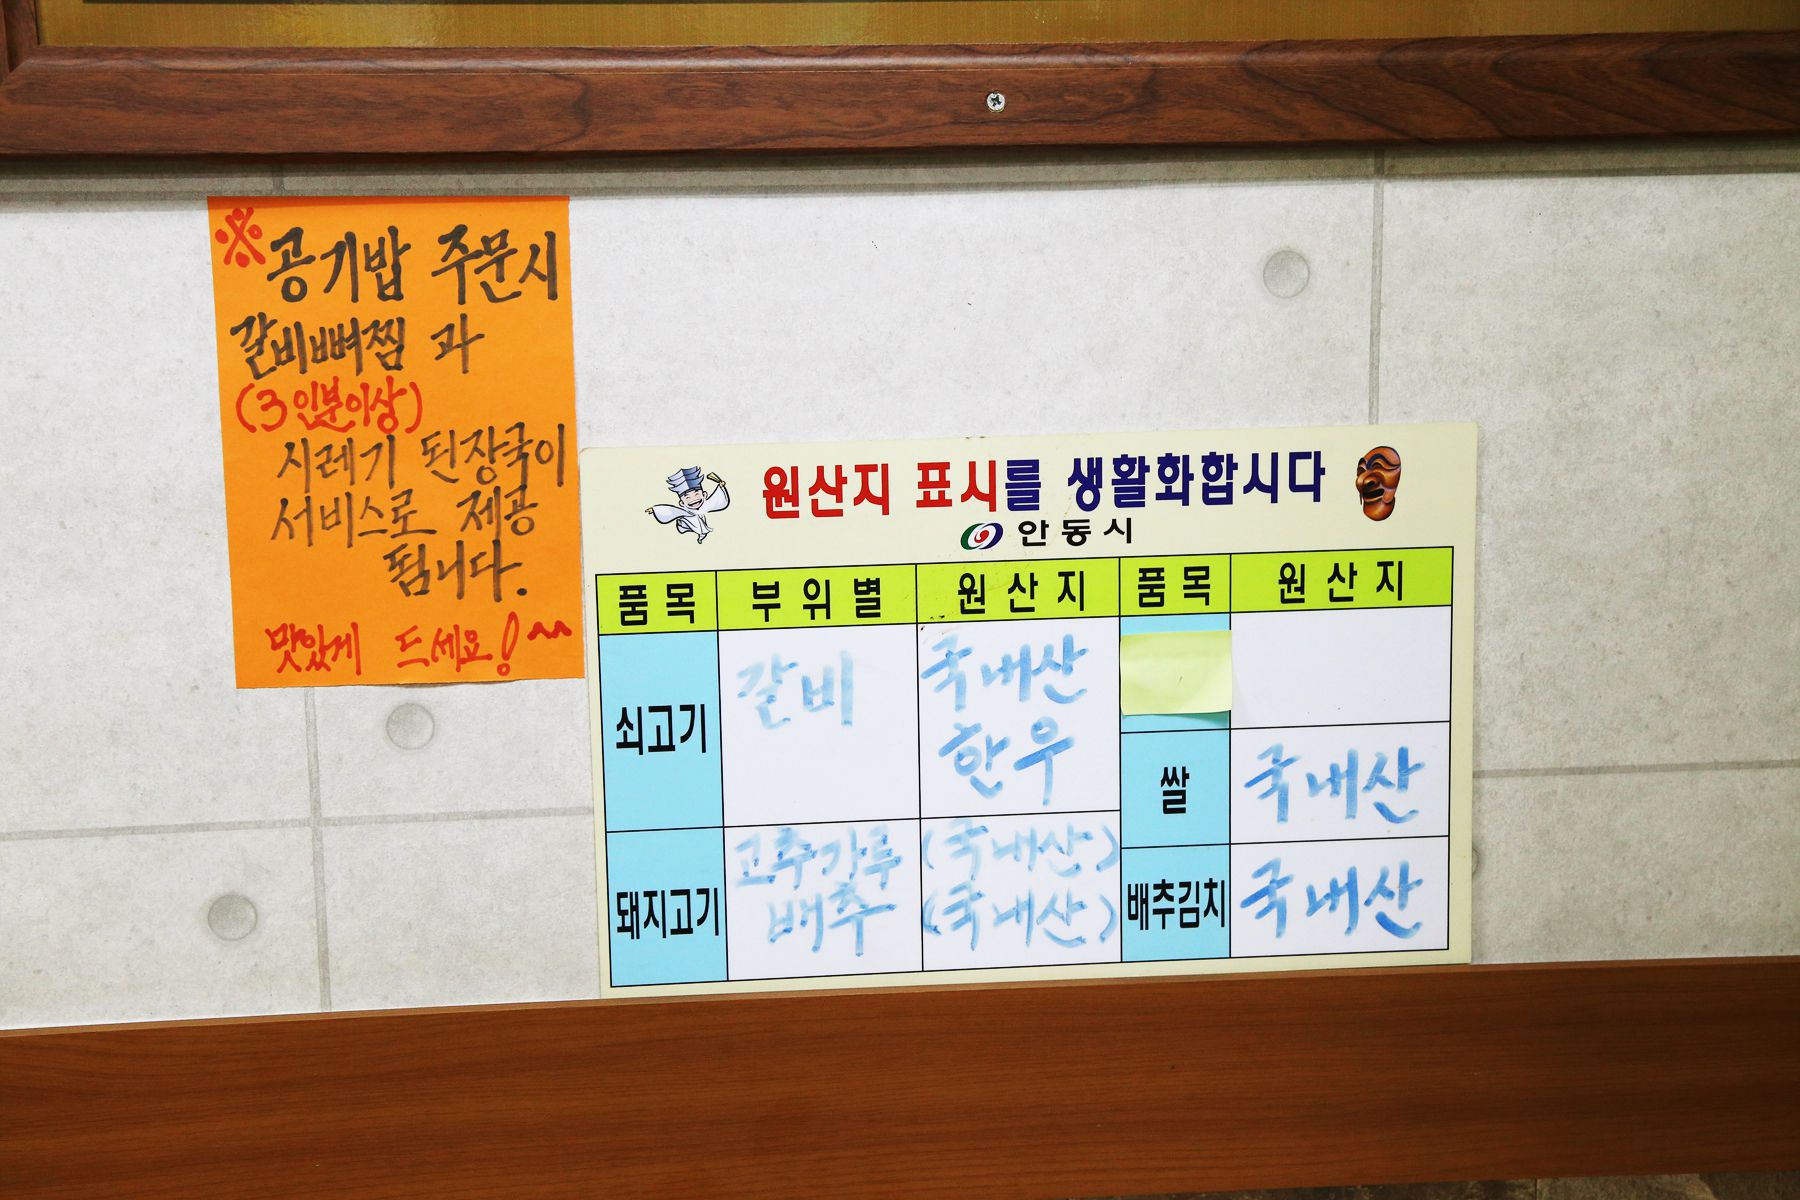 ※ 공기밥 주문시
갈비뼈찜 과
(3인분이상)
시레기 된장국이
서비스로 제공
됩니다.
맛있게 드세요! ^^
원산지 표시를 생활화합시다
안동시
품목 부위별 원산지 품목 원산지
쇠고기 갈비 국내산
한우
쌀 국내산
돼지고기 고추가루 (국내산)
배추 (국내산)
배추김치 국내산